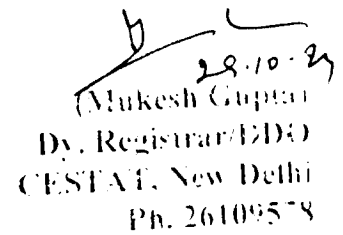 (Mukesh Gupta)
Dy. Registrar/DDO
CESTAT, New Delhi
Ph. 26109578